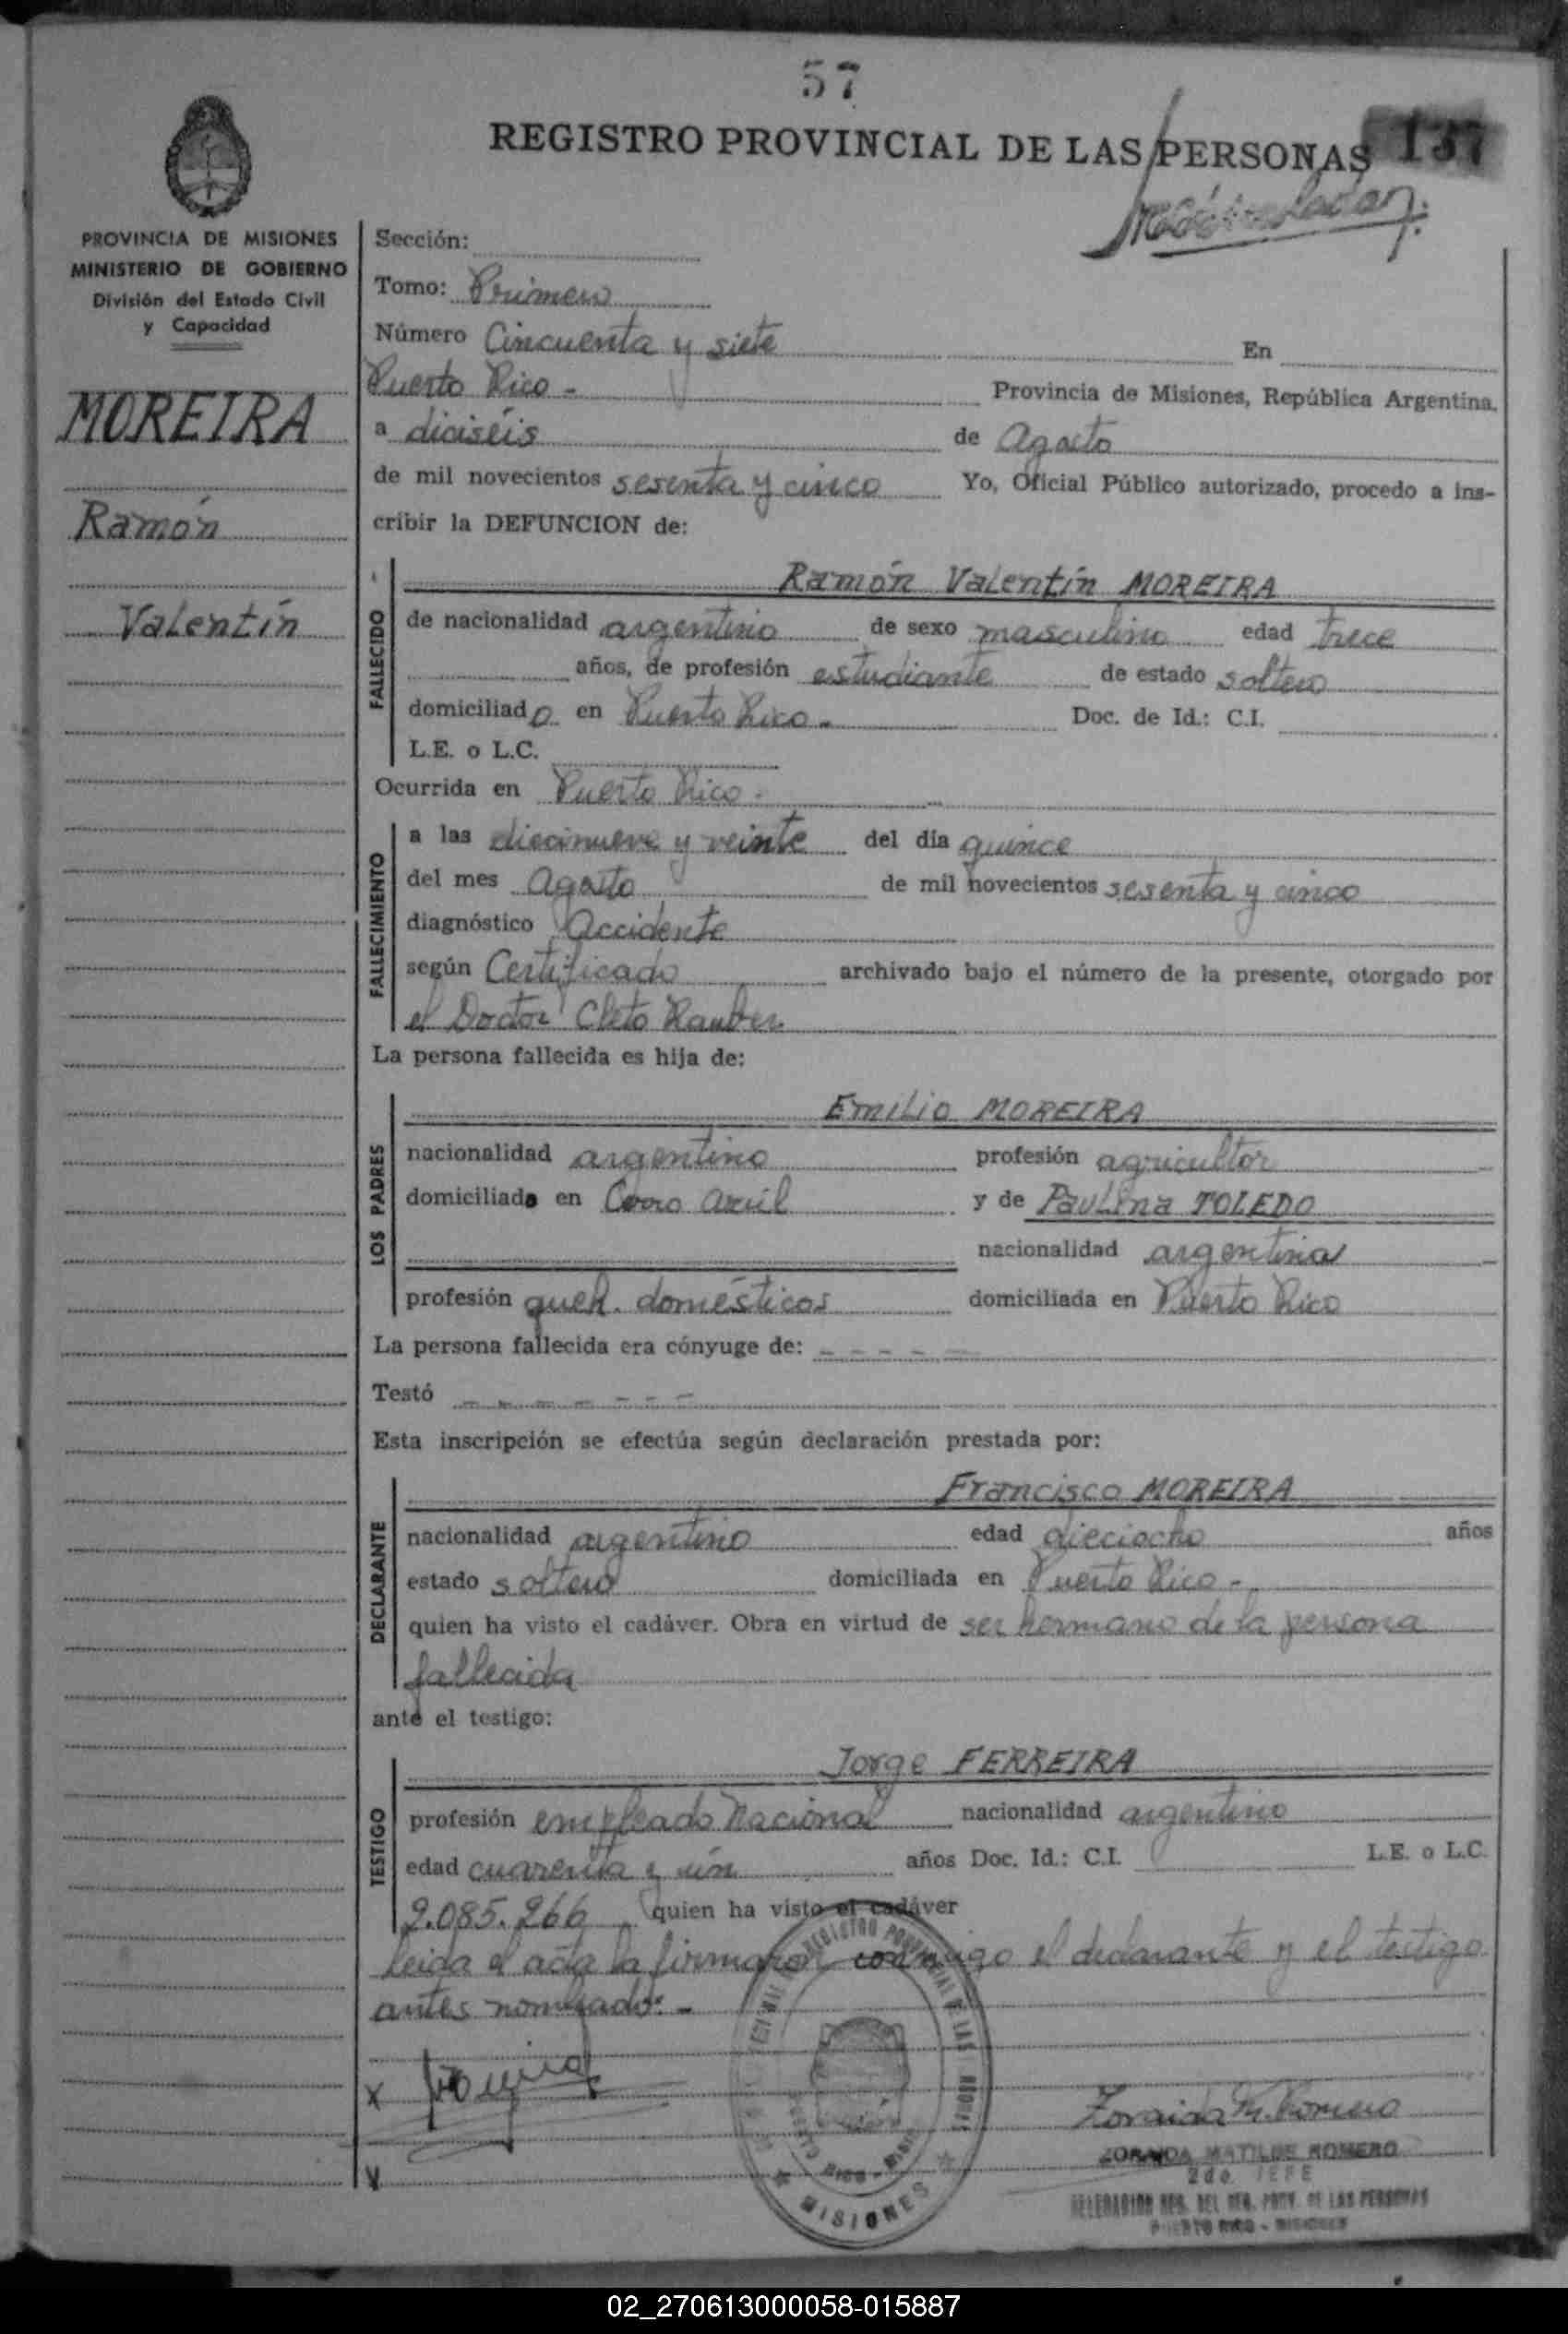 57
REGISTRO PROVINCIAL DE LAS PERSONAS 137
PROVINCIA DE MISIONES
MINISTERIO DE GOBIERNO
División del Estado Civil
y Capacidad
MOREIRA
Ramón
Valentín
Sección:
Tomo: Primero
Número Cincuenta y siete En
Puerto Rico - Provincia de Misiones, República Argentina.
a diciséis de Agosto
de mil novecientos sesenta y cinco Yo, Oficial Público autorizado, procedo a ins-
cribir la DEFUNCION de:
FALLECIDO
Ramón Valentín MOREIRA
de nacionalidad argentino de sexo masculino edad trece
años, de profesión estudiante de estado soltero
domiciliado en Puerto Rico. Doc. de Id.: C.I.
L.E. o L.C.
Ocurrida en Puerto Rico.
FALLECIMIENTO
a las diecinueve y veinte del día quince
del mes Agosto de mil novecientos sesenta y cinco
diagnóstico Accidente
según Certificado archivado bajo el número de la presente, otorgado por
el Doctor Cleto Rauber.
La persona fallecida es hija de:
LOS PADRES
Emilio MOREIRA
nacionalidad argentino profesión agricultor
domiciliado en Cerro Azúl y de Paulina TOLEDO
nacionalidad argentina
profesión queh. domésticos domiciliada en Puerto Rico
La persona fallecida era cónyuge de: - - - - -
Testó - - - - - - -
Esta inscripción se efectúa según declaración prestada por:
DECLARANTE
Francisco MOREIRA
nacionalidad argentino edad dieciocho años
estado soltero domiciliada en Puerto Rico -
quien ha visto el cadáver. Obra en virtud de ser hermano de la persona
fallecida
ante el testigo:
TESTIGO
Jorge FERREIRA
profesión empleado Nacional nacionalidad argentino
edad cuarenta y ún años Doc. Id.: C.I. L.E. o L.C.
2.085.266 quien ha visto el cadáver
Leida el acta la firmaron conmigo el declarante y el testigo
antes nombrado. -
REGISTRO PROVINCIAL DE LAS
PUERTO RICO - MISIONES
MISIONES
X
Zoraida M. Romero
ZORAIDA MATILDE ROMERO
2do. JEFE
DELEGACION REG. DEL REG. PROV. DE LAS PERSONAS
PUERTO RICO - MISIONES
02_270613000058-015887